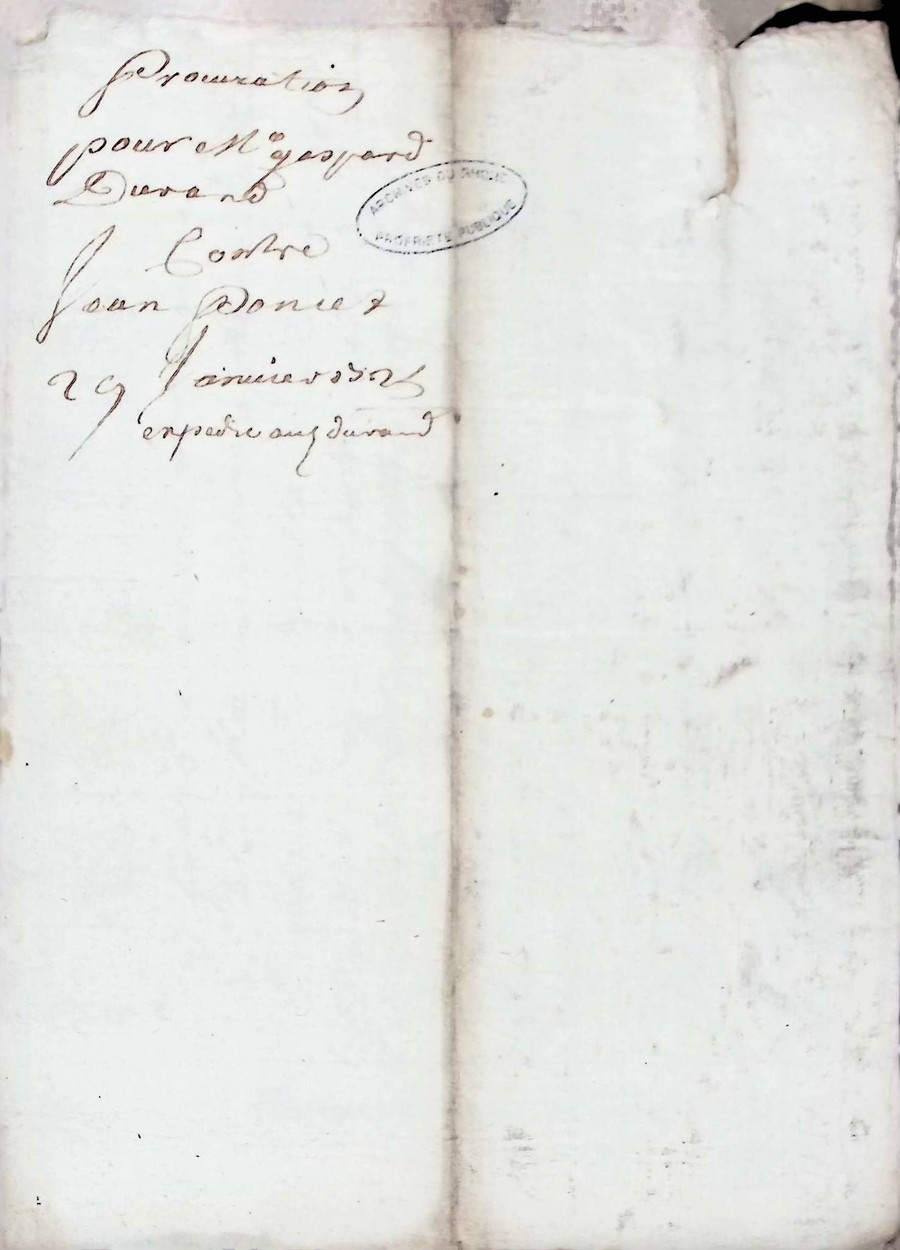 Procuration
pour Me gaspard
Durand
ARCHIVES DU RHONE
PROPRIETE PUBLIQUE
Contre
Jean Poncet
29 Janvier
expedie aud durand